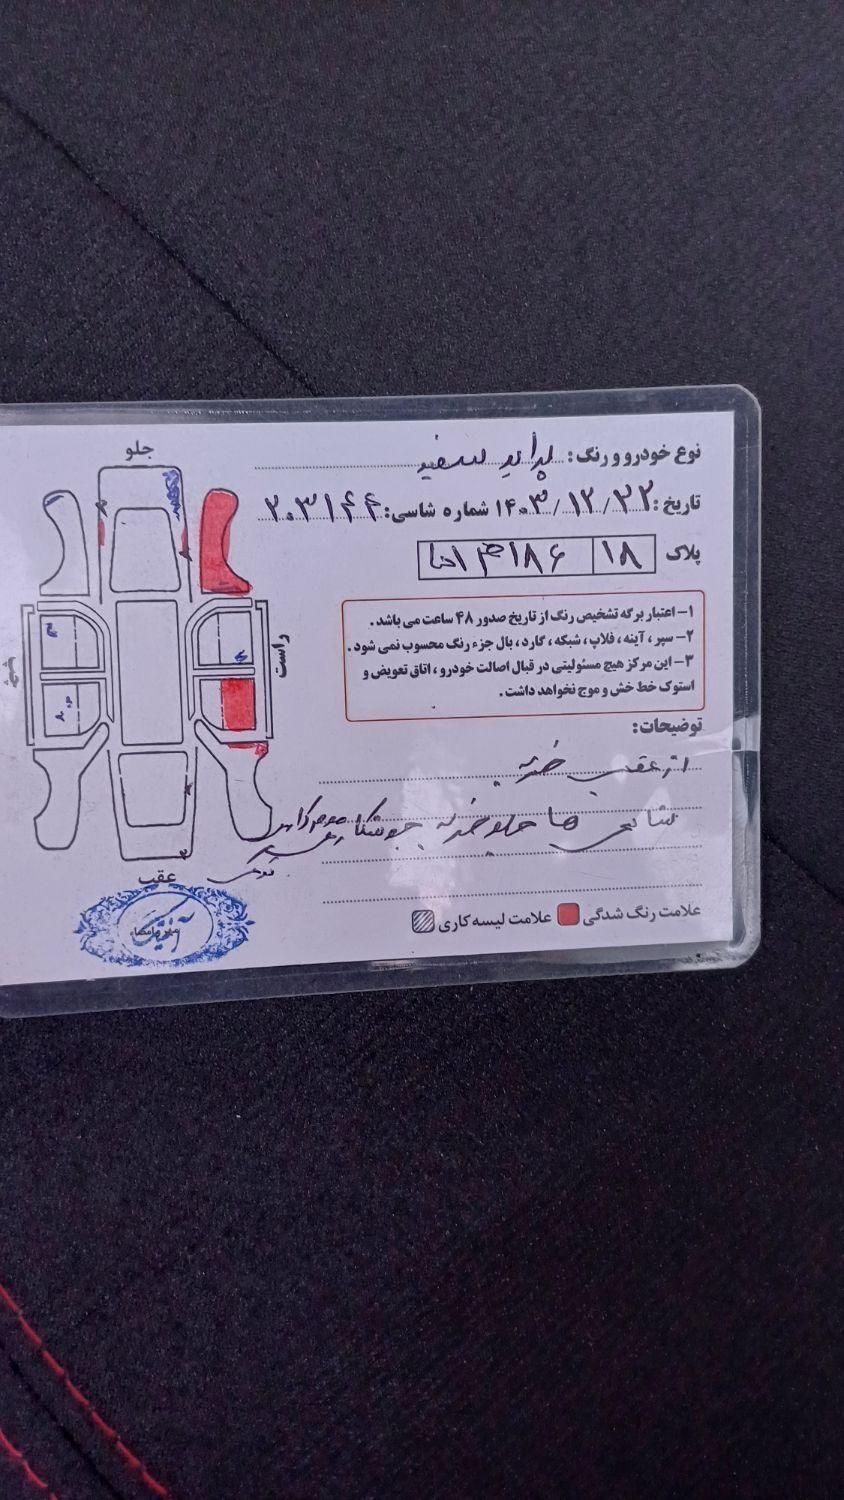 نوع خودرو و رنگ: پراید سفید
تاریخ: ۲۲/۱۲/۱۴۰۳ شماره شاسی: ۲۰۳۱۴۴
پلاک ۱۸ ۱۸۶
۱- اعتبار برگه تشخیص رنگ از تاریخ صدور ۴۸ ساعت می باشد.
۲- سپر، آینه، فلاپ، شبکه، گارد، بال جزء رنگ محسوب نمی شود.
۳- این مرکز هیچ مسئولیتی در قبال اصالت خودرو، اتاق تعویض و
استوک خط خش و موج نخواهد داشت.
توضیحات:
از عقب ضربه
شاسی ها جلو ضربه جوشکاری
علامت رنگ شدگی علامت لیسه کاری
جلو
راست
عقب
مهر و امضاء